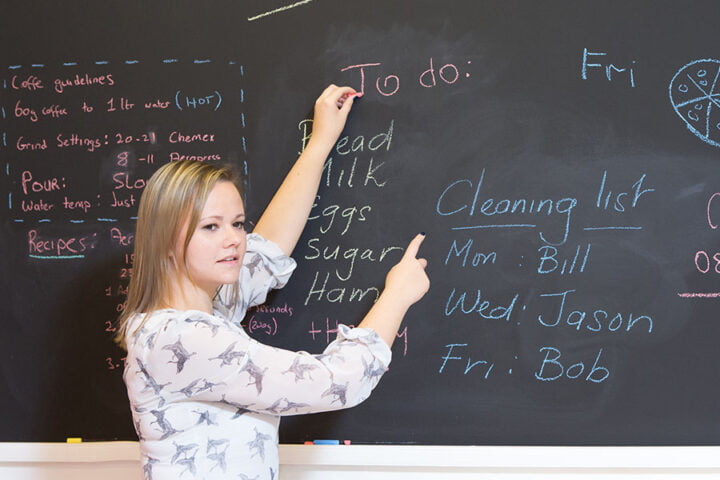 Coffe guidelines
60g coffee to 1 ltr water (HOT)
Grind Settings: 20-21 Chemex
8-11 Aeropress
Pour: Slo
Water temp: Just
Recipes: Aero
To do:
Bread
Milk
Eggs
Sugar
Ham
Fri
Cleaning list
Mon : Bill
Wed: Jason
Fri: Bob
08